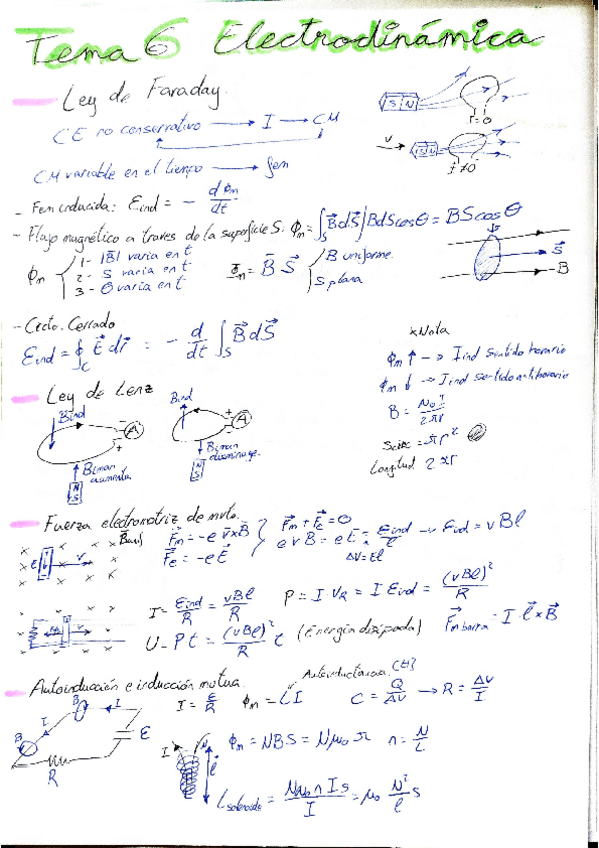 Tema 6 Electrodinámica
Ley de Faraday.
CE no conservativo → I → CM
CM variable en el tiempo → fem
S N
I=0
v
S N
I≠0
- Fem inducida: Eind = - dΦm/dt
- Flujo magnético a traves de la superficie S: Φm = ∫S B⃗ dS⃗ ∫ B dS cosΘ = BS cosΘ
Φm
1- |B⃗| varia en t
2- S varia en t
3- Θ varia en t
Φm = B⃗ S⃗
B uniforme
S plana
S⃗
B
- Ccto. Cerrado
Eind = ∮C E⃗ dr⃗ = - d/dt ∫S B⃗ dS⃗
* Nota
Φm ↑ → I ind sentido horario
Φm ↓ → I ind sentido antihorario
B = μ0 I / 2πr
= πr²
Longitud 2πr
Ley de Lenz
Bind
A
Biman aumenta
N S
Bind
A
Biman disminuye
N S
Fuerza electromotriz de mvto.
F⃗m = -e v⃗×B⃗
F⃗e = -e E⃗
F⃗m + F⃗e = 0
e v B = e E = Eind/ℓ → Eind = v B ℓ
ΔV = Eℓ
I = Eind/R = vBℓ/R
P = I · VR = I Eind = (vBℓ)²/R
U = P t = (vBℓ)²/R t (Energía disipada)
F⃗m barra = I · ℓ⃗ × B⃗
Autoinducción e inducción mutua.
I = E/R
Φm = LI
Autoinductancia (H)
C = Q/ΔV → R = ΔV/I
B
I
I
B
E
R
I
N
ℓ
Φm = NBS = Nμ0 n = N/L
Lsolenoide = Nμ0 n I s / I = μ0 N²/ℓ s